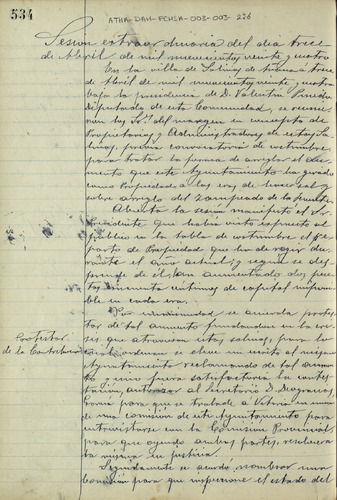 534
ATHA-DAH-FCHSA-003-003-226
Sesión extraordinaria del día trece
de Abril de mil novecientos veinte y cuatro
En la villa de Salinas de Añana á trece
de Abril de mil novecientos veinte y cuatro
bajo la presidencia de D. Valentín
Diputado de esta Comunidad, se reunie-
ron los Sres. del margen en concepto de
Propietarios y Administradores de estas Sa-
linas, previa convocatoria de costumbre
para tratar la forma de arreglar el au-
mento que este Ayuntamiento ha girado
como Propiedad á las eras de hacer sal y
sobre arreglo del zampeado de la fuente.
Abierta la sesión manifestó el Sr.
Presidente que había visto expuesto al
público en la tabla de costumbre el Re-
parto de Propiedad que ha de regir du-
rante el año actual, y según se des-
prende de él, han aumentado dos pese-
tas cincuenta céntimos de capital imponi-
ble en cada era.
Por unanimidad se acuerda protes-
tar de tal aumento fundándose en la cri-
sis que atraviesan estas salinas, para lo
cual ordenan se eleve un escrito al mismo
Ayuntamiento reclamando de tal aumen-
to y si no fuera satisfactoria la contes-
tación, autorizar al Secretario D. Deogracias
para que se traslade á Vitoria en unión
de una comisión de este Ayuntamiento para
entrevistarse con la Comisión Provincial,
para que oyendo ambas partes, resolviera
la misma en justicia.
Seguidamente se acordó nombrar una
Comisión para que inspeccione el estado del
Protestar
de la Contribución